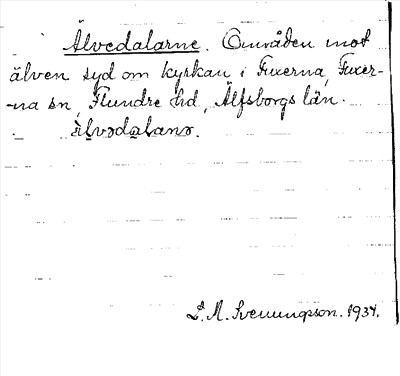 Älvedalarne. Områden mot
älven syd om kyrkan i Fuxerna, Fuxer-
-na sn, Flundre hd, Älfsborgs län.
L. M. Svenungsson. 1934.